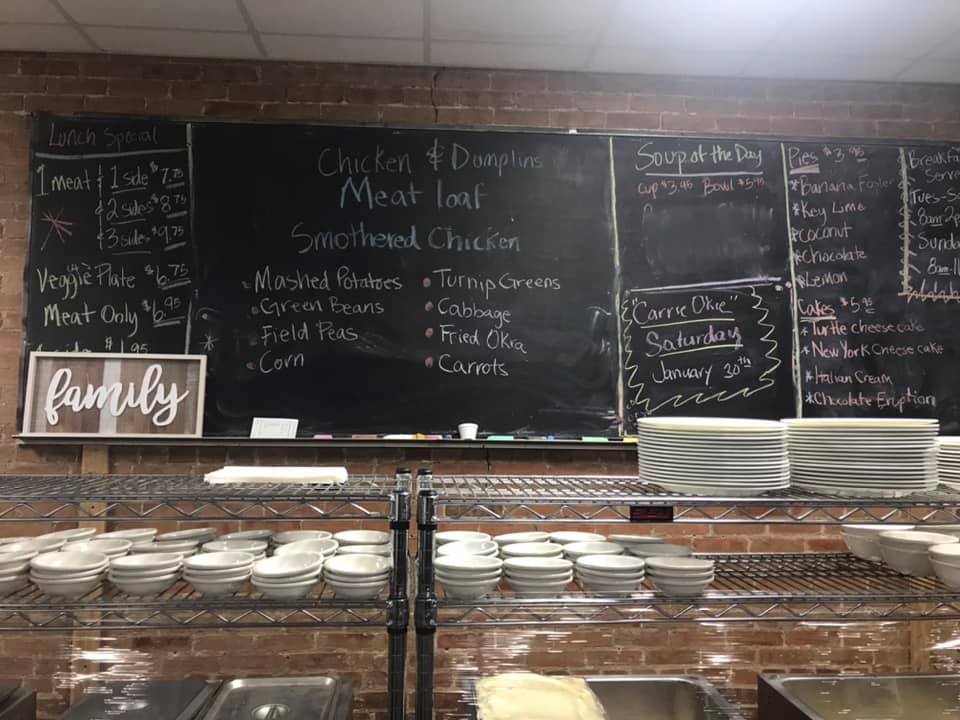 Lunch Special
1 meat & 1 side $7.75
& 2 sides $8.75
& 3 sides $9.75
Veggie Plate $6.75
Meat Only $6.95
$1.95
family
Chicken & Dumplins
Meat loaf
Smothered Chicken
Mashed Potatoes
Green Beans
Field Peas
Corn
Turnip Greens
Cabbage
Fried Okra
Carrots
Soup of the Day
cup $3.95 Bowl $5.95
"Carrie Okie"
Saturday
January 30th
Pies $3.95
*Banana Foster
*Key Lime
*Coconut
*Chocolate
*Lemon
Cakes $5.95
*Turtle cheese cake
*New York Cheese cake
*Italian Cream
*Chocolate Eruption
Breakfa
Serve
Tues-Sa
8am-2p
Sunda
8am-11